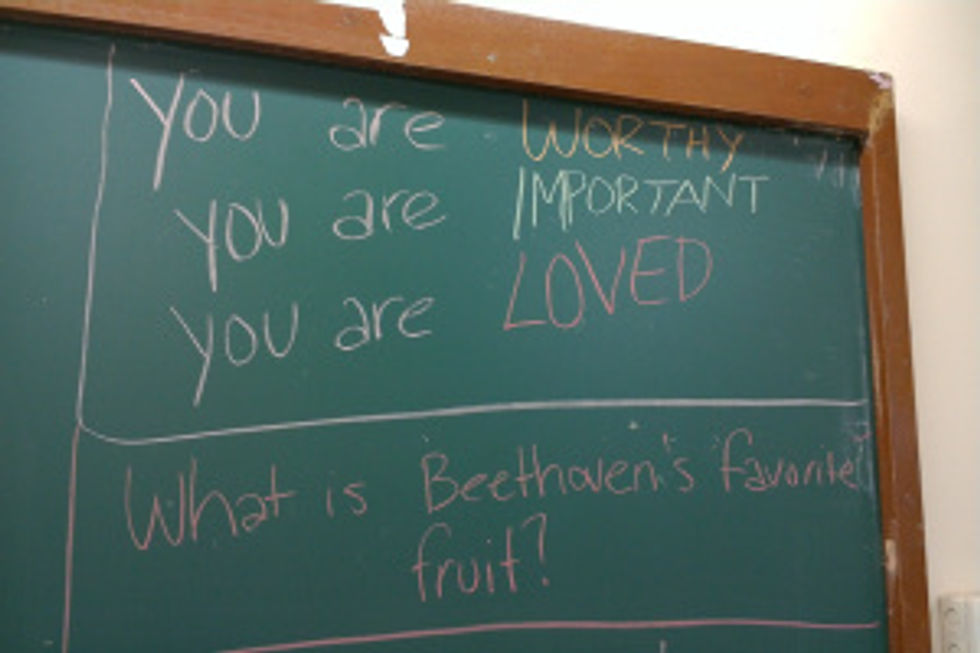 You are WORTHY
you are IMPORTANT
you are LOVED
What is Beethoven's favorite
fruit?